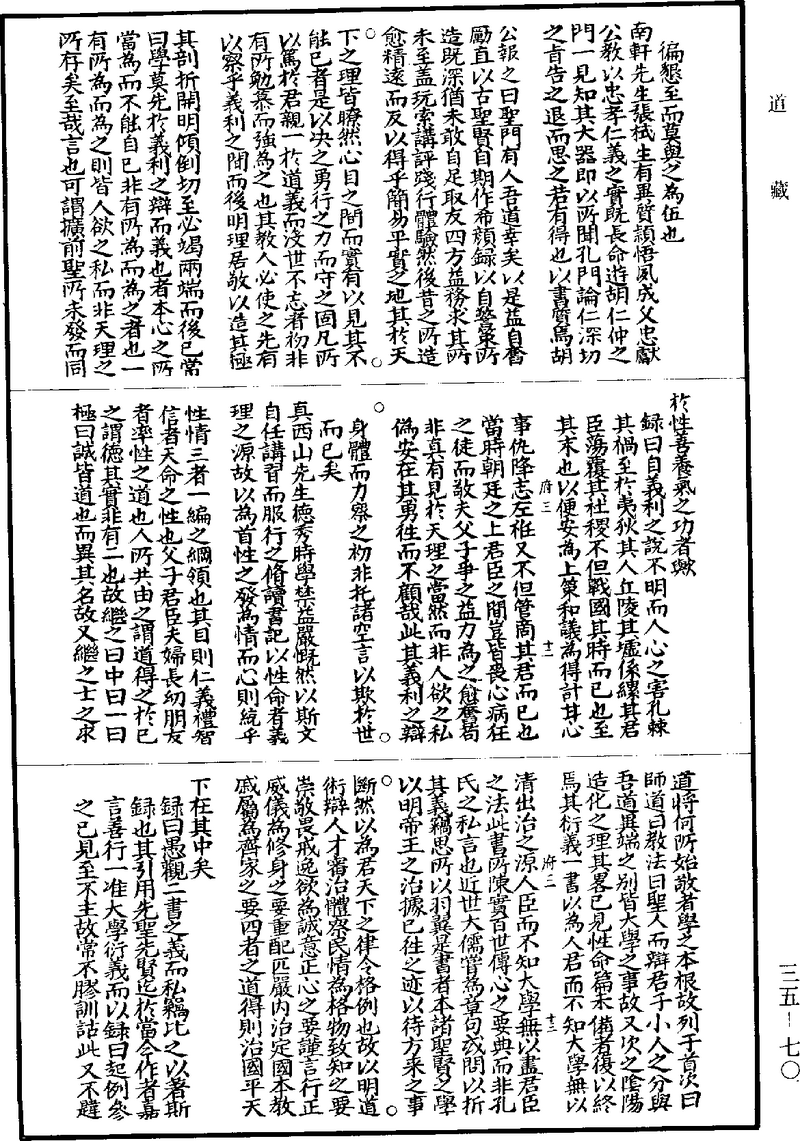 道藏
徧懇至而莫與之為伍也
南軒先生張栻生有異質頴悟夙成父忠獻
公教以忠孝仁義之實既長命遊胡仁仲之
門一見知其大器即以所聞孔門論仁深切
之旨告之退而思之若有得也以書質焉胡
公報之曰聖門有人吾道幸矣以是益自奮
勵直以古聖賢自期作希顏録以自警藁所
造既深猶未敢自足取友四方益務求其所
未至蓋玩索講評踐行體驗然後昔之所造
愈精遠而反以得乎簡易平實之地其於天
下之理皆瞭然心目之間而實有以見其不
能已者是以決之勇行之力而守之固凡所
以篤於君親一於道義而沒世不忘者初非
有所勉慕而強為之也其教人必使之先有
以察乎義利之間而後明理居敬以造其極
其剖折開明傾倒切至必竭兩端而後已當
曰學莫先於義利之辯而義也者本心之所
當為而不能自已非有所為而為之者也一
有所為而為之則皆人欲之私而非天理之
所存矣至哉言也可謂擴前聖所未發而同
於性善養氣之功者歟
録曰自義利之說不明而人心之害孔棘
其禍至於夷狄其人丘陵其墟係縲其君
臣蕩覆其社稷不但戰國其時而已也至
其末也以便安為上策和議為得計其心
府三 十二
事仇降志左袵又不但管商其君而已也
當時朝廷之上君臣之間豈皆喪心病狂
之徒而敬夫父子爭之益力為之愈奮苟
非真有見於天理之當然而非人欲之私
偽安在其勇徃而不顧哉此其義利之辯
身體而力察之初非托諸空言以欺於世
而已矣
真西山先生德秀時學禁益嚴慨然以斯文
自任講習而服行之脩讀書記以性命者義
理之源故以為首性之發為情而心則統乎
性情三者一編之綱領也其目則仁義禮智
信者天命之性也父子君臣夫婦長幼朋友
者率性之道也人所共由之謂道得之於已
之謂德其實非有二也故繼之曰中曰一曰
極曰誠皆道也而異其名故又繼之士之求
道將何所始敬者學之本根故列于首次曰
師道曰教法曰聖人而辯君子小人之分與
吾道異端之別皆大學之事故又次之陰陽
造化之理其畧已見性命篇未備者後以終
焉其衍義一書以為人君而不知大學無以
府三 十三
清出治之源人臣而不知大學無以盡君臣
之法此書所陳實百世傳心之要典而非孔
氏之私言也近世大儒嘗為章句或問以折
其義竊思所以羽翼是書者本諸聖賢之學
以明帝王之治據已徃之迹以待方來之事
斷然以為君天下之律令格例也故以明道
術辯人才審治體察民情為格物致知之要
崇敬畏戒逸欲為誠意正心之要謹言行正
威儀為修身之要重配匹嚴內治定國本教
戚屬為齊家之要四者之道得則治國平天
下在其中矣
録曰愚觀二書之義而私竊比之以著斯
録也其引用先聖先賢迄於當今作者嘉
言善行一准大學衍義而以録曰起例參
之已見至不主故常不膠訓詁此又不韙
三五—七〇